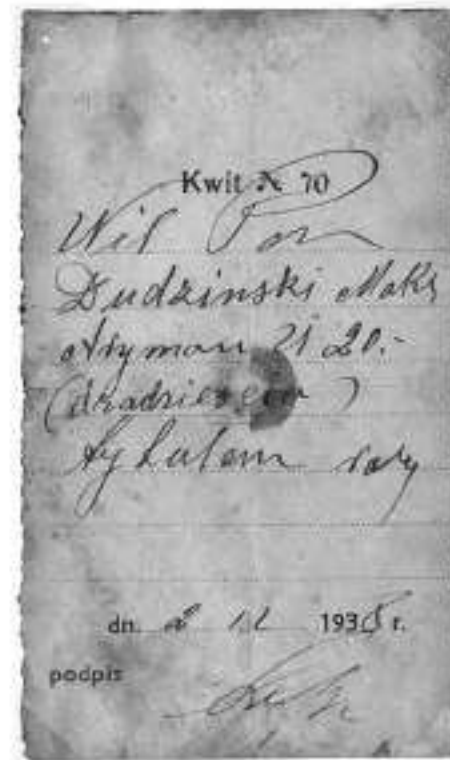 Kwit № 70
Wil Pan
Dudzinski Maks
otrzymano zł 20.-
(dwadzieścia)
tytułem raty
dn. 2 193 r.
podpis